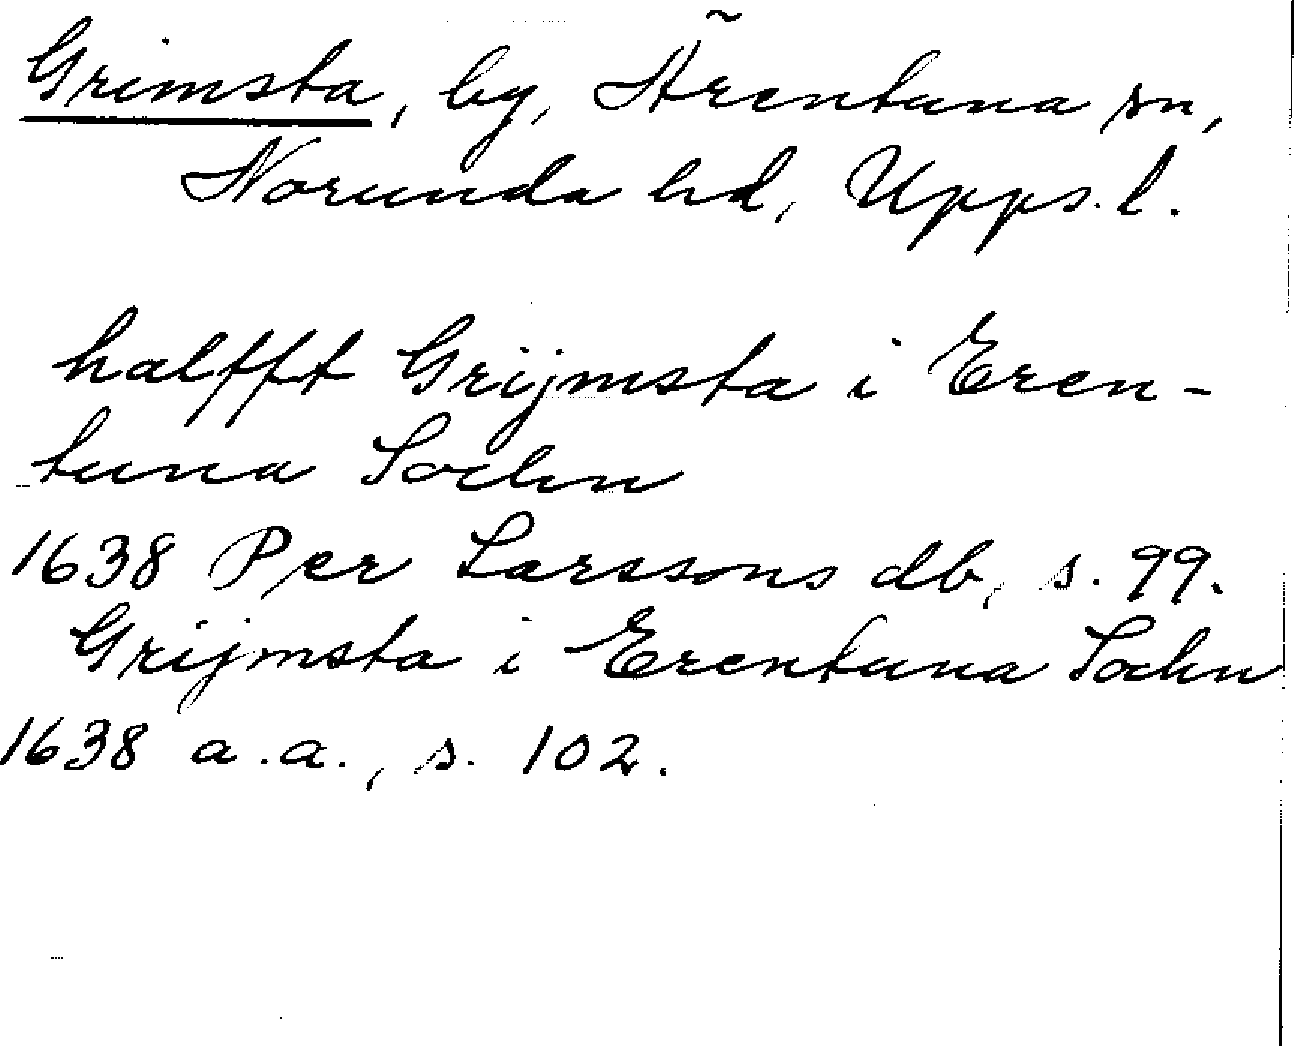 Grimsta, by, Ärentuna sn,
Norunda hd, Upps. l.
halfft Grijmsta i Eren-
tuna Sochn
1638 Per Larssons db, s. 99.
Grijmsta i Erentuna Sochn
1638 a.a., s. 102.